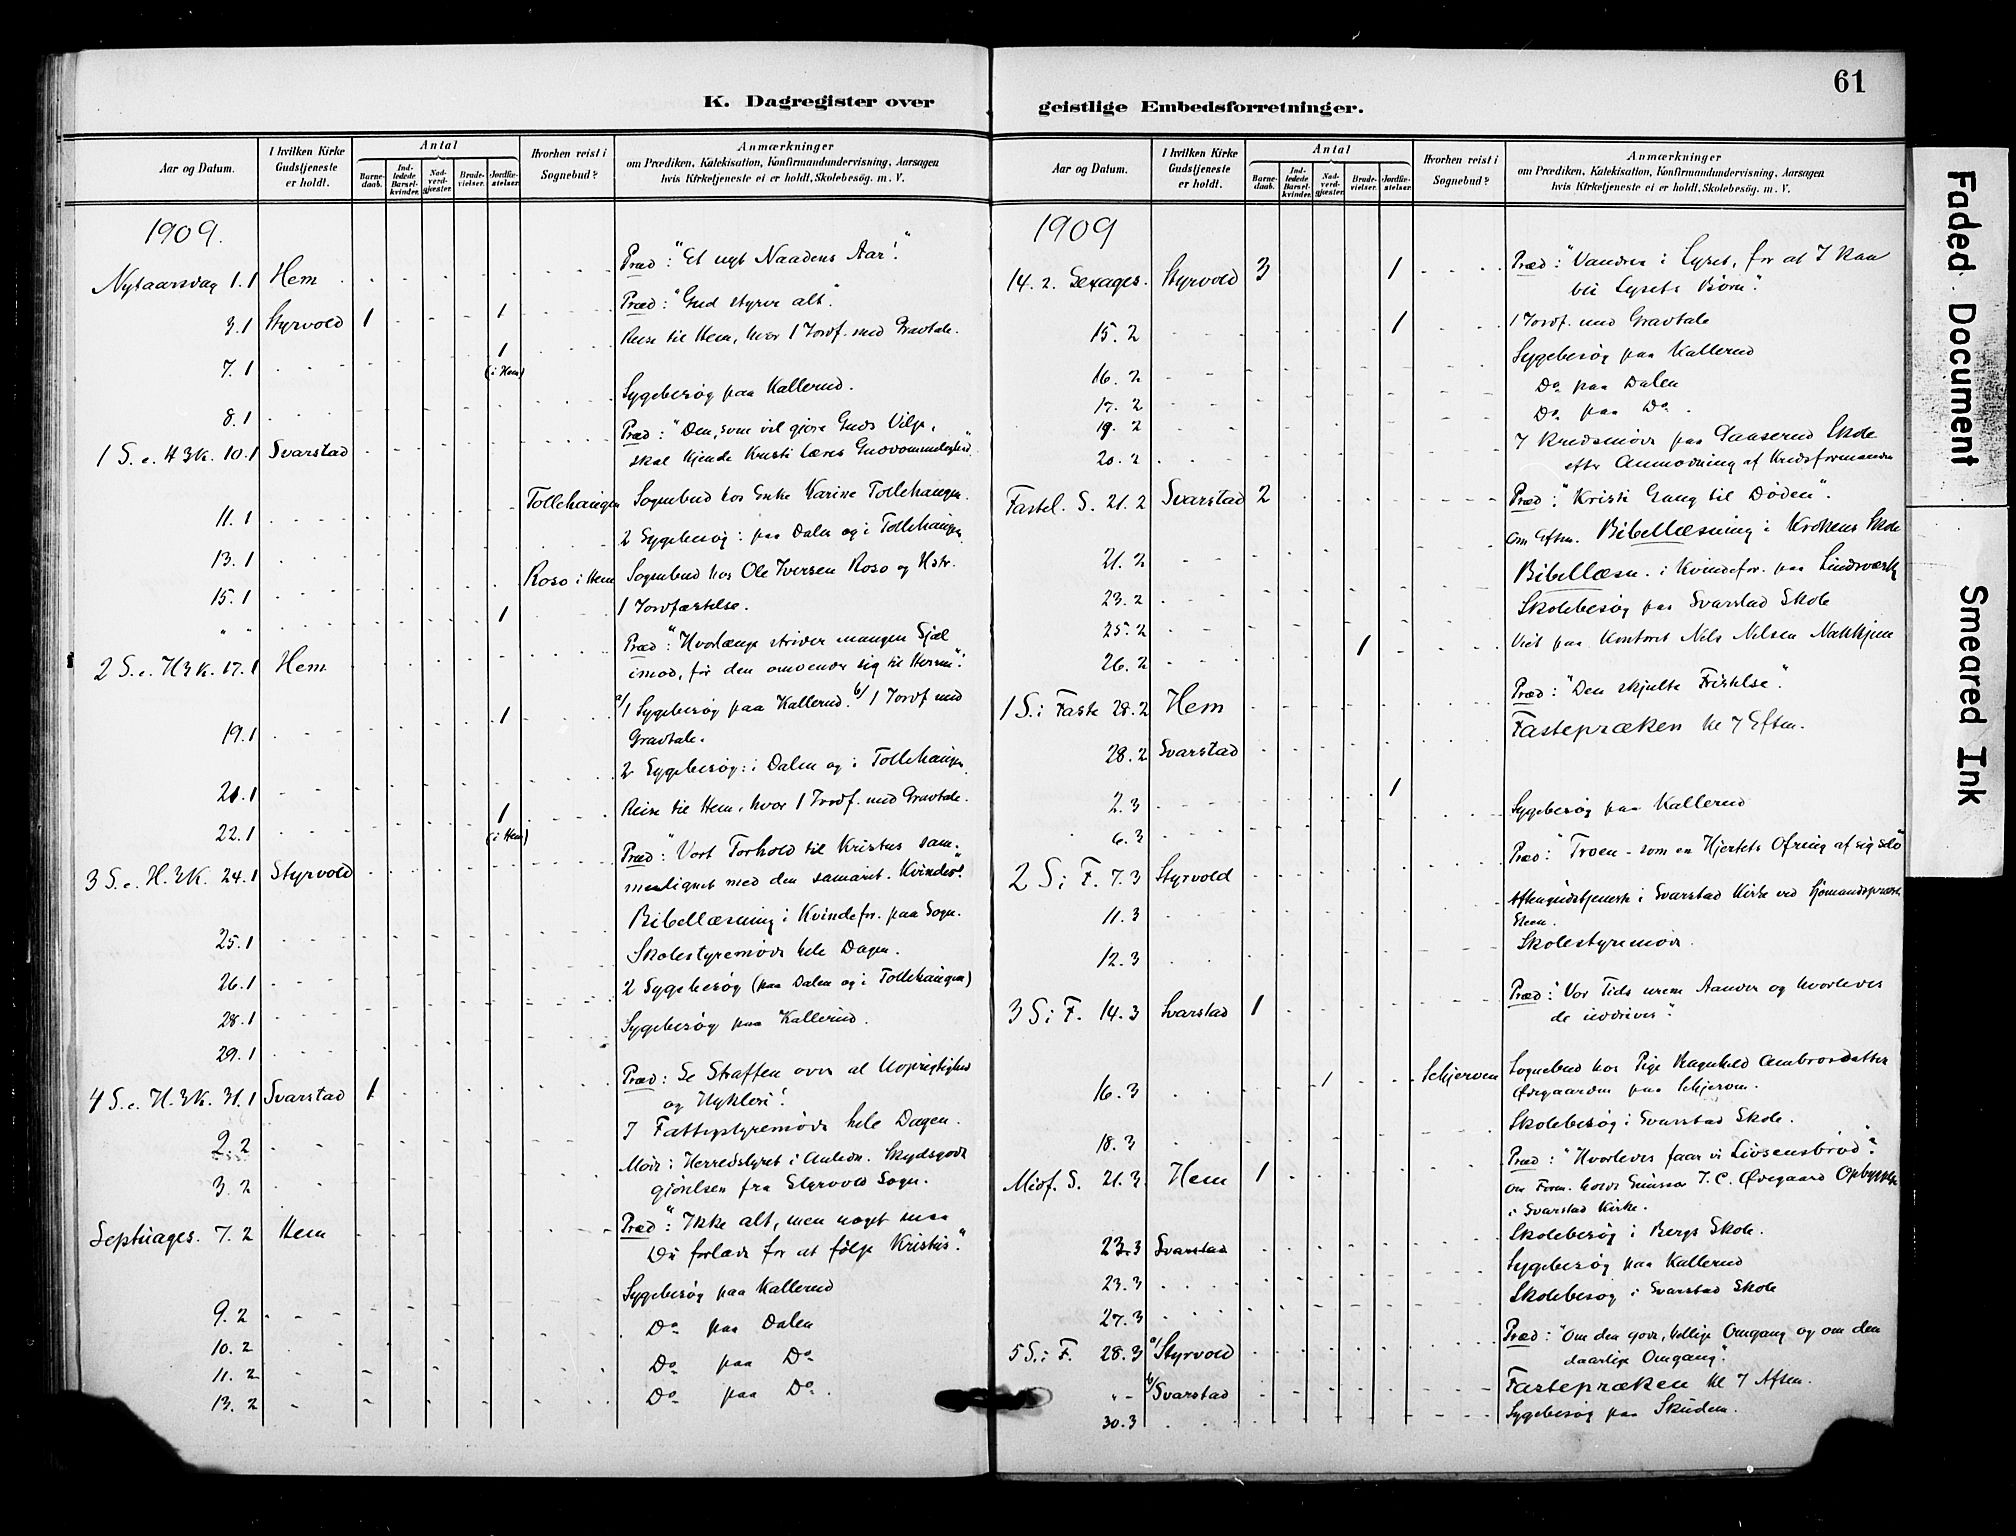 61
K. Dagregister over
geistlige Embedsforretninger.
Aar og Datum.
I hvilken Kirke Gudstjeneste er holdt.
Antal
Barnedaab.
Indledede Barselkvinder.
Nadverdgjæster.
Brudevielser.
Jordfæstelser.
Hvorhen reist i Sognebud?
Anmærkninger
om Prædiken, Katekisation, Konfirmandundervisning, Aarsagen
hvis Kirketjeneste ei er holdt, Skolebesøg. m. V.
1909.
Nytaarsdag 1.1 Hem Præd: "Et nyt Naadens Aar!"
3.1 Styrvold 1 1 Præd: "Gud styrer alt".
7.1 1 (i Hem) Reise til Hem, hvor 1 Jordf. med Gravtale.
8.1 Sygebesøg paa Kallerud.
1 S. e. H3K. 10.1 Svarstad Præd: "Den, som vil gjøre Guds Vilje,
skal kjende Kristi Læres Guddommelighed"
11.1 Tollehaugen Sognebud hos Enke Karine Tollehaugen.
13.1 2 Sygebesøg: paa Dalen og i Tollehaugen
15.1 Roso i Hem Sognebud hos Ole Iversen Roso og Hstr.
" " 1 1 Jordfæstelse.
2 S. e. H3K. 17.1 Hem Præd: "Hvorlænge strider mangen Sjæl
imod, før den omvender sig til Herren".
19.1 1 a/ 1 Sygebesøg paa Kallerud. b/ 1 Jordf med
Gravtale.
21.1 2 Sygebesøg: i Dalen og i Tollehaugen
22.1 1 (i Hem) Reise til Hem, hvor 1 Jordf. med Gravtale.
3 S. e. H.3K. 24.1 Styrvold Præd: "Vort Forhold til Kristus sam-
menlignet med den samarit. Kvindes".
25.1 Bibellæsning i Kvindefor. paa Sogn.
26.1 Skolestyremøde hele Dagen.
28.1 2 Sygebesøg (paa Dalen og i Tollehaugen)
29.1 Sygebesøg paa Kallerud.
4 S. e. H.3K. 31.1 Svarstad 1 Præd: Se Straffen over al Uoprigtighed
og Hykleri!
2.2 I Fattigstyremøde hele Dagen.
3.2 Møde i Herredstyret i Anledn. Skydsgodt
gjørelsen fra Styrvold Sogn.
Septuages. 7.2 Hem Præd: "Ikke alt, men noget maa
Du forlade for at følge Kristus".
9.2 Sygebesøg paa Kallerud
10.2 Do paa Dalen
11.2 Do paa Do
13.2 Do paa Do.
Aar og Datum.
I hvilken Kirke Gudstjeneste er holdt.
Antal
Barnedaab.
Indledede Barselkvinder.
Nadverdgjæster.
Brudevielser.
Jordfæstelser.
Hvorhen reist i Sognebud?
Anmærkninger
om Prædiken, Katekisation, Konfirmandundervisning, Aarsagen
hvis Kirketjeneste ei er holdt, Skolebesøg. m. V.
1909
14.2. Sexages. Styrvold 3 1 Præd: "Vandrer i Lyset, for at I kan
bli Lysets Børn".
15.2 1 1 Jordf. med Gravtale
16.2 Sygebesøg paa Kallerud
17.2 Do paa Dalen
19.2 Do paa Do.
20.2 I Kredsmøde paa Skole
efter Anmodning af Kredsformanden
Fastel. S. 21.2 Svarstad 2 Præd: "Kristi Gang til Døden".
21.2 Om Eftm. Bibellæsning i Krokens Skole
23.2 Bibellæsn. i Kvindefor. paa
25.2 Skolebesøg paa Svarstad Skole
26.2 1 Viet paa Kontoret Nils Nilsen
1 S. i Faste 28.2 Hem Præd: "Den skjulte Fristelse".
28.2 Svarstad Fastepræken kl 7 Eftm.
2.3 1
6.3 Sygebesøg paa Kallerud
2 S. i F. 7.3 Styrvold Præd: "Troen - som en Hjertets Ofring af sig selv"
11.3 Aftengudstjeneste i Svarstad Kirke ved Sjømandspræst
12.3 Skolestyremøde.
3 S. i F. 14.3 Svarstad 1 Præd: "Vor Tids urene Aander og hvorledes
de uddrives".
16.3 1 Schjerven Sognebud hos Pige Ragnhild Ambrosdatter
Ødegaarden paa Schjerven.
18.3 Skolebesøg i Svarstad Skole.
Midf. S. 21.3 Hem 1 Præd: "Hvorledes faar vi Livsensbrød"?
Om Form. holdt J. C. Ødegaard Opbyggelse
i Svarstad Kirke.
23.3 Svarstad Skolebesøg i Bergs Skole.
23.3 Sygebesøg paa Kallerud
27.3 Skolebesøg i Svarstad Skole
5 S. i F. 28.3 a/ Styrvold Præd: "Om den gode, hellige Omgang og om den
daarlige Omgang".
" - b/ Svarstad Fastepræken kl 7 Aften.
30.3 Sygebesøg paa Skuden.
Faded Document
Smeared Ink